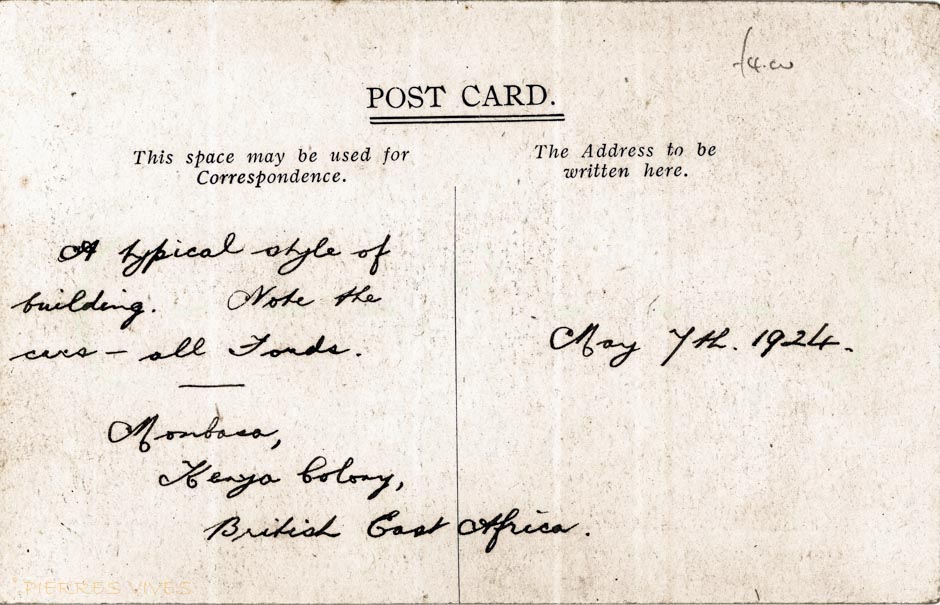 POST CARD.
This space may be used for
Correspondence.
The Address to be
written here.
A typical style of
building. Note the
cars – all Fords.
Mombasa,
Kenya Colony,
British East Africa.
May 7th. 1924.
PIERRES VIVES